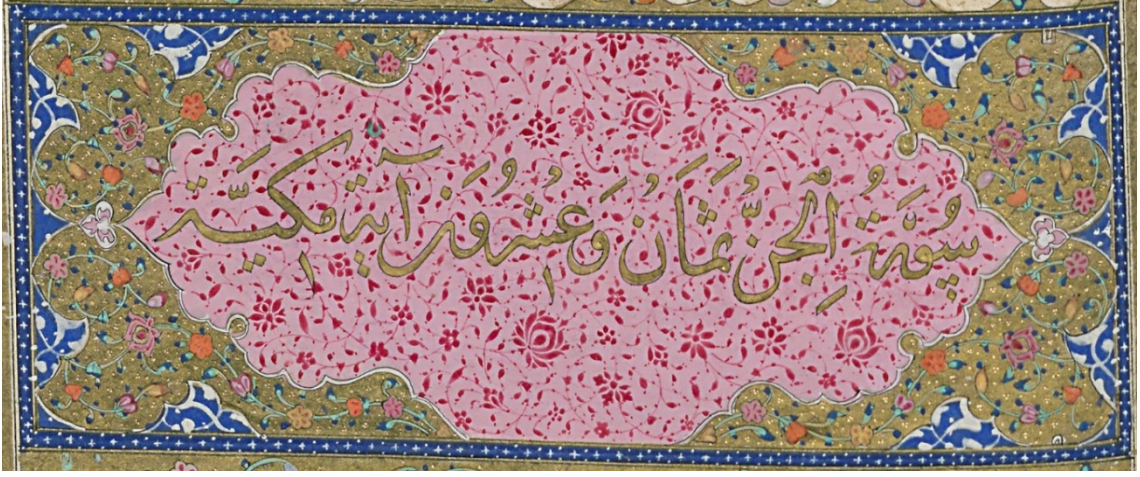 سُورَةُ الْجِنِّ ثَمَانُ وَعِشْرُونَ آيَة مَكِّيَّة